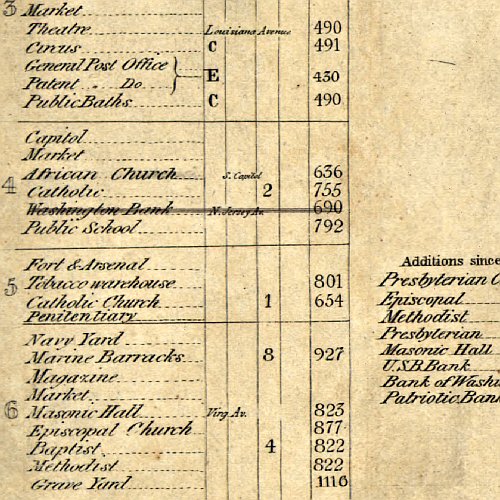 3 Market
Theatre Louisiana Avenue 490
Circus C 491
General Post Office
E 430
Patent „ Do
Public Baths C 490
Capitol
Market
African Church S. Capitol 636
4
Catholic 2 755
Washington Bank N. Jersey Av. 690
Public School 792
Fort & Arsenal
5 Tobacco warehouse 801
Catholic Church 1 654
Penitentiary
Navy Yard
Marine Barracks 8 927
Magazine
Market
6 Masonic Hall Virg. Av. 823
Episcopal Church 877
Baptist 4 822
Methodist 822
Grave Yard 1116
Additions since
Presbyterian C
Episcopal
Methodist
Presbyterian
Masonic Hall
U.S.B. Bank
Bank of Washi
Patriotic Bank